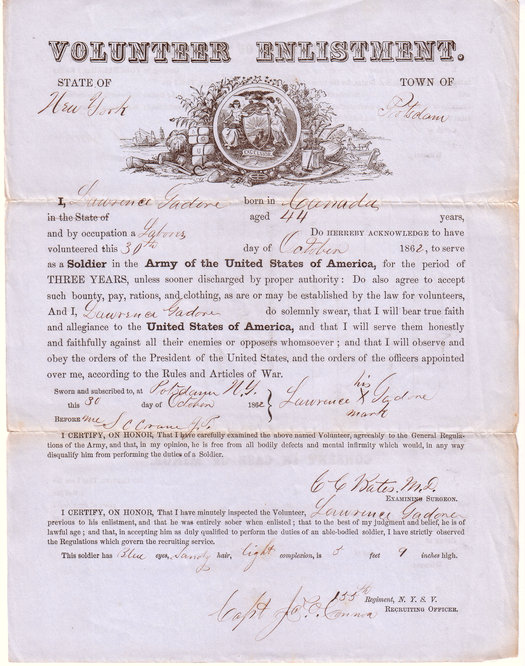 VOLUNTEER ENLISTMENT.
STATE OF TOWN OF
New York Potsdam
EXCELSIOR
I, Lawrence Gadore born in Canada
in the State of aged 44 years,
and by occupation a Labores Do HEREBY ACKNOWLEDGE to have
volunteered this 30th day of October 1862, to serve
as a Soldier in the Army of the United States of America, for the period of
THREE YEARS, unless sooner discharged by proper authority: Do also agree to accept
such bounty, pay, rations, and clothing, as are or may be established by the law for volunteers,
And I, Lawrence Gadore do solemnly swear, that I will bear true faith
and allegiance to the United States of America, and that I will serve them honestly
and faithfully against all their enemies or opposers whomsoever; and that I will observe and
obey the orders of the President of the United States, and the orders of the officers appointed
over me, according to the Rules and Articles of War.
Sworn and subscribed to, at Potsdam N.Y. his
this 30 day of October 1862 Lawrence X Gadore
BEFORE me S C Crane J.P. mark
I CERTIFY, ON HONOR, That I have carefully examined the above named Volunteer, agreeably to the General Regula-
tions of the Army, and that, in my opinion, he is free from all bodily defects and mental infirmity which would, in any way
disqualify him from performing the duties of a Soldier.
C C Bates, M.D.
EXAMINING SURGEON.
I CERTIFY, ON HONOR, That I have minutely inspected the Volunteer, Lawrence Gadore
previous to his enlistment, and that he was entirely sober when enlisted; that to the best of my judgment and belief, he is of
lawful age; and that, in accepting him as duly qualified to perform the duties of an able-bodied soldier, I have strictly observed
the Regulations which govern the recruiting service.
This soldier has Blue eyes, Sandy hair, light complexion, is 5 feet 9 inches high.
Regiment, N. Y. S. V.
Capt J. RECRUITING OFFICER.